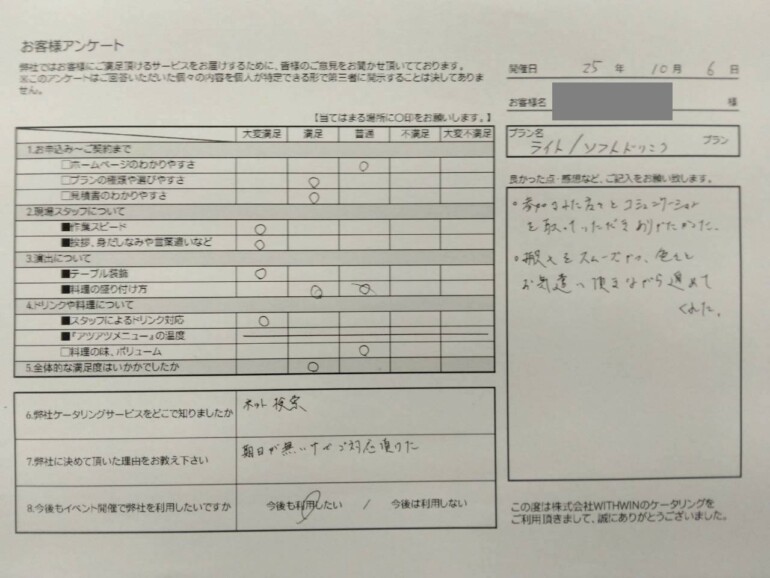 お客様アンケート
弊社ではお客様にご満足頂けるサービスをお届けするために、皆様のご意見をお聞かせ頂いております。
※このアンケートはご回答いただいた個々の内容を個人が特定できる形で第三者に開示することは決してありません。
開催日 25 年 10 月 6 日
お客様名 様
【当てはまる場所に○印をお願いします。】
プラン名
ライト/ソフトドリンク プラン
大変満足 満足 普通 不満足 大変不満足
1.お申込み～ご契約まで
□ホームページのわかりやすさ ○
□プランの種類や選びやすさ ○
□見積書のわかりやすさ ○
2.現場スタッフについて
■作業スピード ○
■挨拶、身だしなみや言葉遣いなど ○
3.演出について
■テーブル装飾 ○
■料理の盛り付け方 ○
4.ドリンクや料理について
■スタッフによるドリンク対応 ○
■『アツアツメニュー』の温度
□料理の味、ボリューム ○
5.全体的な満足度はいかがでしたか ○
良かった点・感想など、ご記入をお願い致します。
・参加された方々とコミュニケーション
を取っていただきありがたかった。
・搬入もスムーズかつ、色々と
お気遣い頂きながら進めて
くれた。
6.弊社ケータリングサービスをどこで知りましたか ネット検索
7.弊社に決めて頂いた理由をお教え下さい 期日が無い中ご対応頂けた
8.今後もイベント開催で弊社を利用したいですか 今後も利用したい / 今後は利用しない
この度は株式会社WITHWINのケータリングを
ご利用頂きまして、誠にありがとうございました。